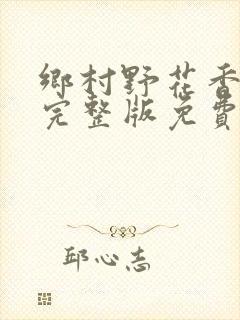 鄉村野花香
完整版免費
邱心志